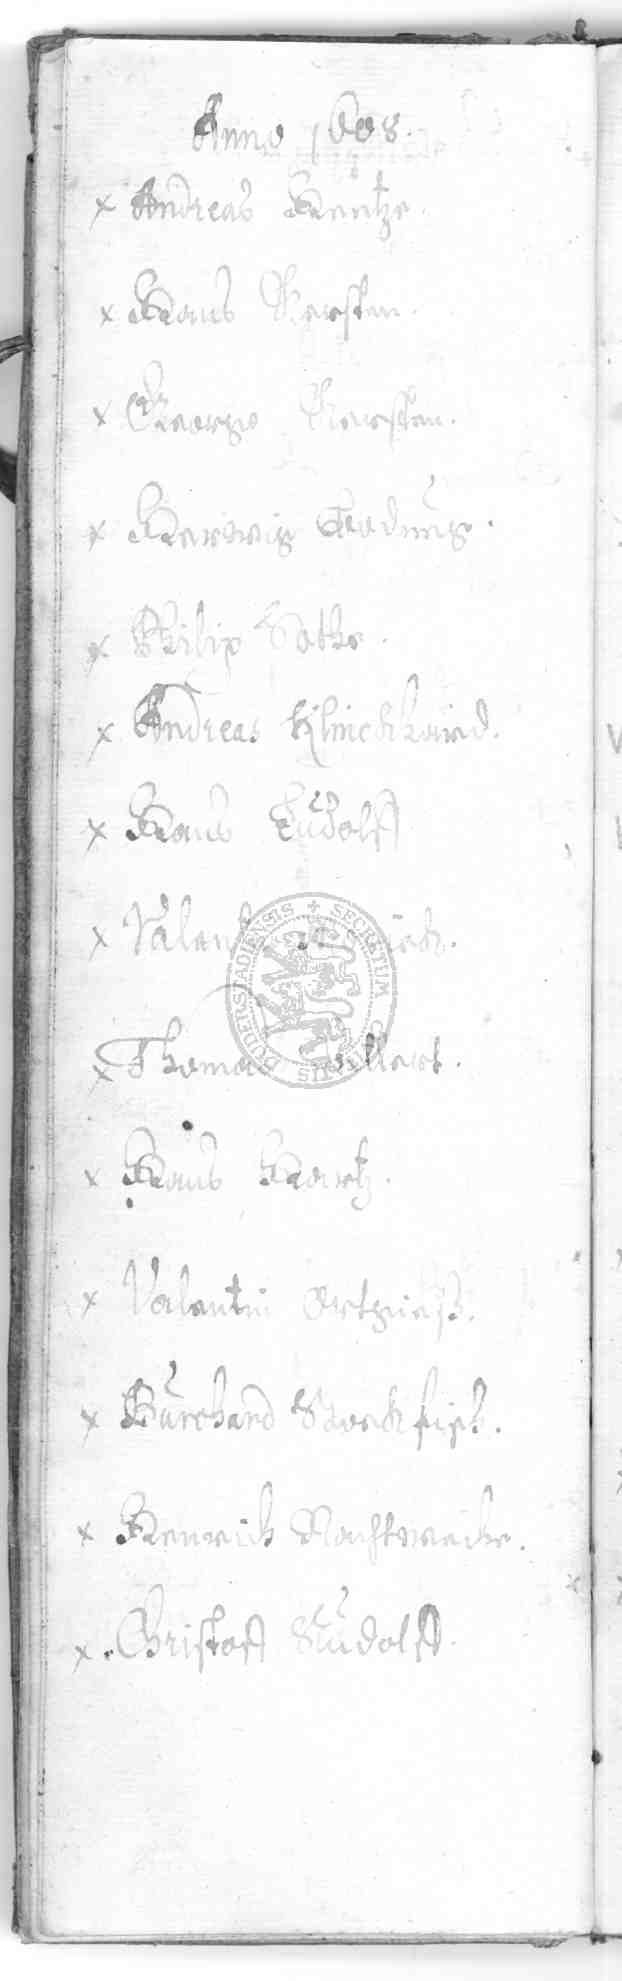 Anno 1608.
x Andreas Hentze.
x Hans Kersten.
x George Kersten.
x Herwig
x Philip Bothe.
x Andreas Klinckhard.
x Hans Rudolff
x Valentin
x Thomas
x Hans Hartz.
x Valentin Ortgieß.
x Burchard Stockfisch.
x Henrich Nachtweide.
x Christoff Rudolff.
DUDERSTADIENSIS + SECRETUM